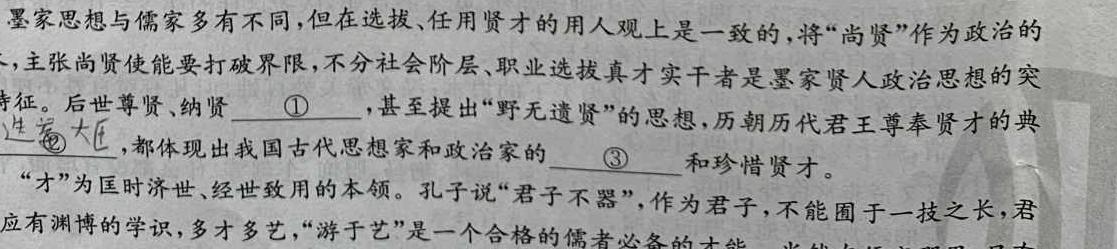 墨家思想与儒家多有不同,但在选拔、任用贤才的用人观上是一致的,将“尚贤”作为政治的
,主张尚贤使能要打破界限,不分社会阶层、职业选拔真才实干者是墨家贤人政治思想的突
特征。后世尊贤、纳贤 ① ,甚至提出“野无遗贤”的思想,历朝历代君王尊奉贤才的典
② ,都体现出我国古代思想家和政治家的 ③ 和珍惜贤才。
“才”为匡时济世、经世致用的本领。孔子说“君子不器”,作为君子,不能囿于一技之长,君
应有渊博的学识,多才多艺,“游于艺”是一个合格的儒者必备的才能